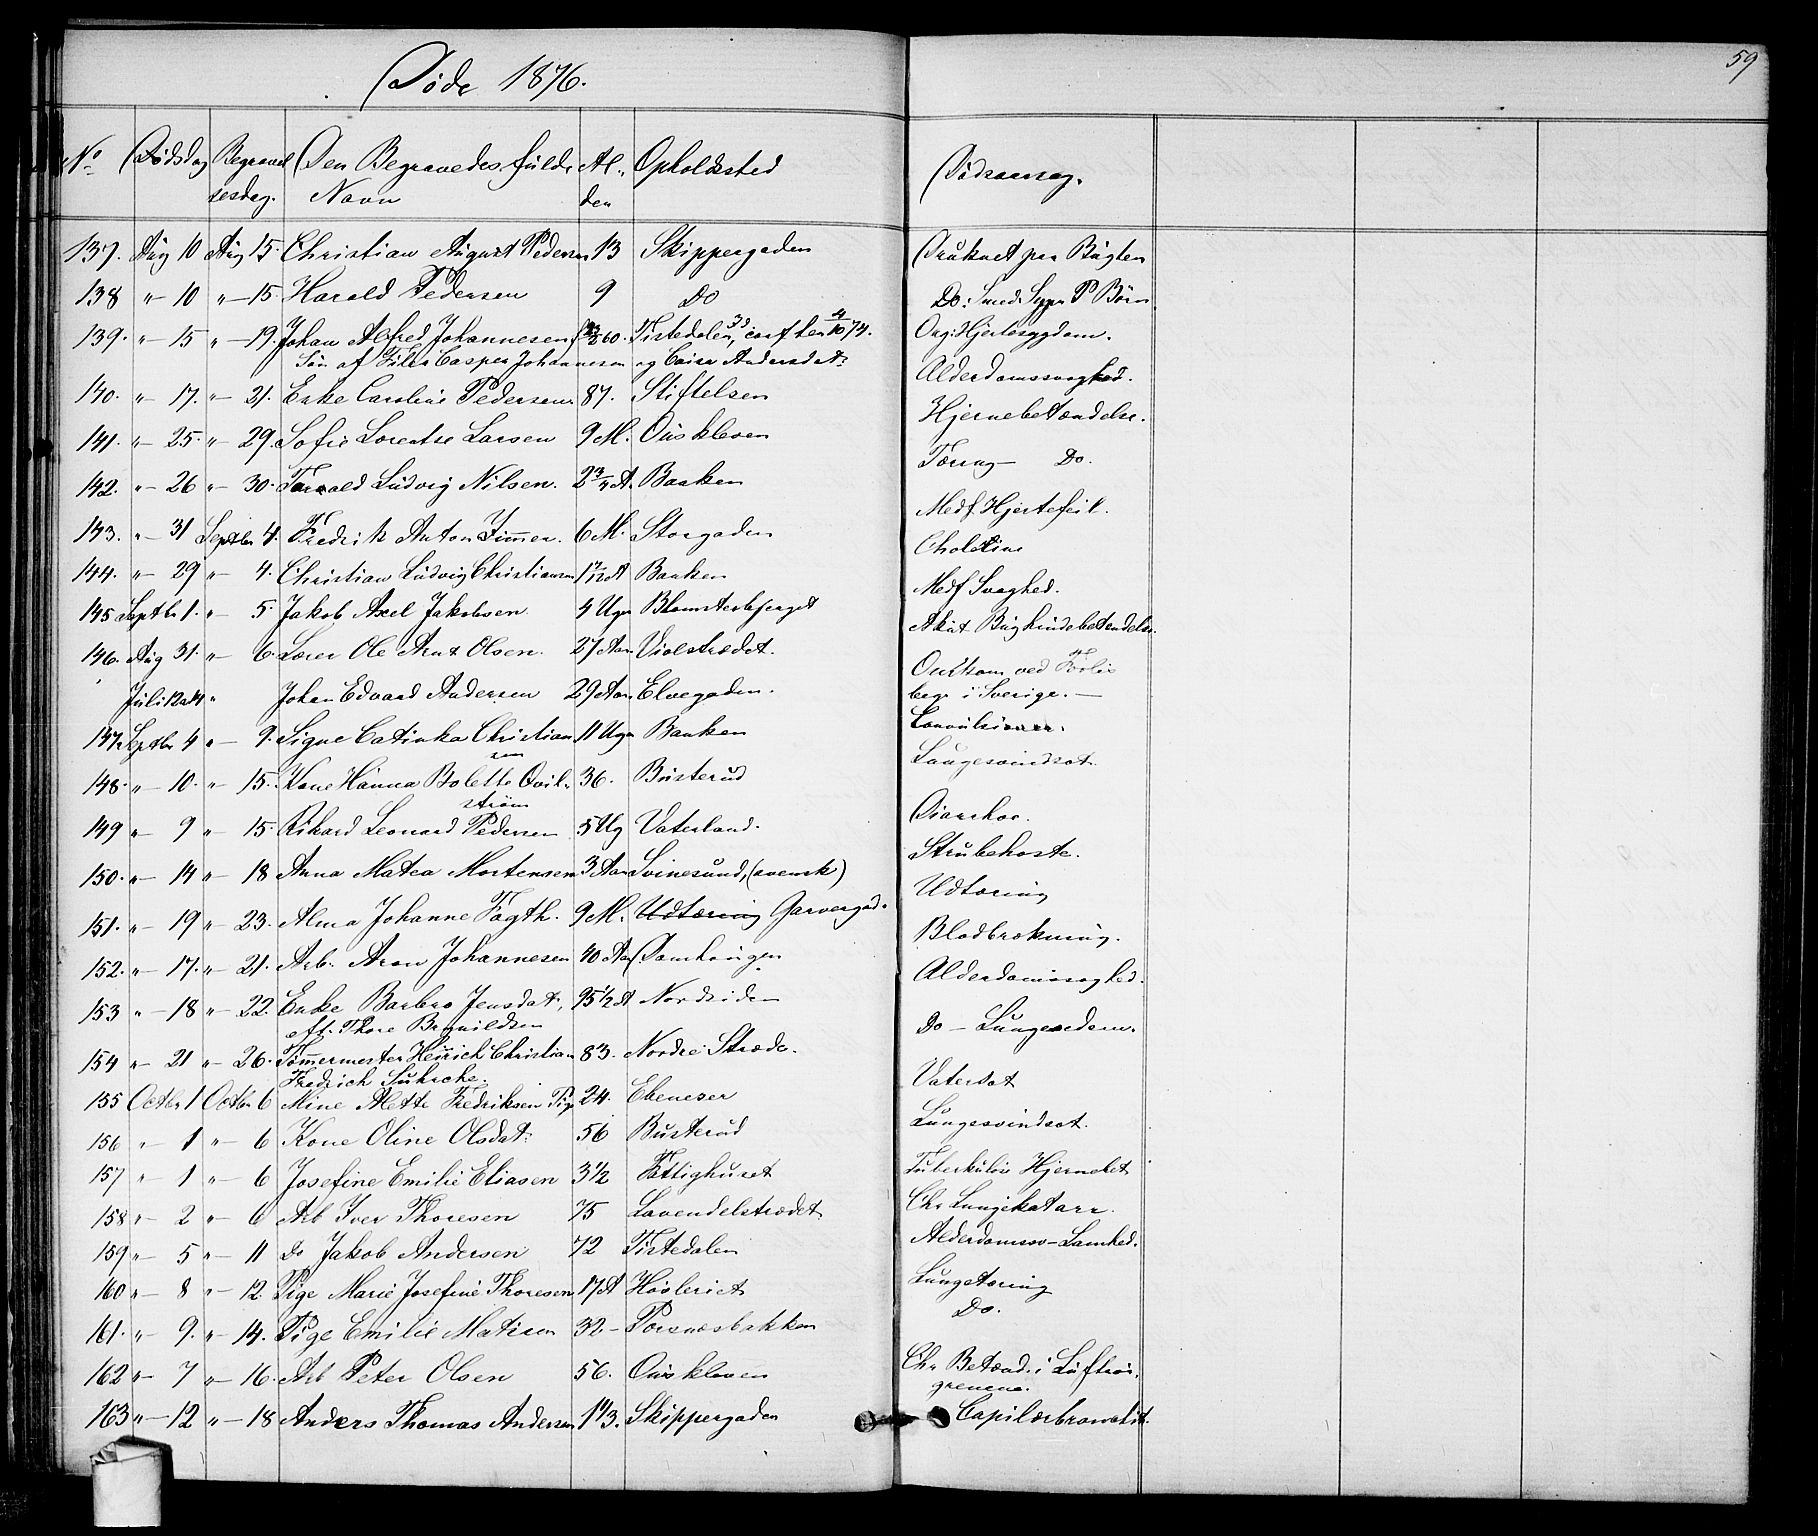 59
Døde 1876.
No Dødsdag Begravel Den Begravedes fulde Al- Opholdssted Dødsaarsag.
sesdag. Navn den
137. Aug 10 Aug 15. Christian August Pedersen 13 Skippergaden Druknet paa Bugten
138 " 10 " 15. Harald Pedersen 9 Do Do
139. " 15 " 19. Johan Alfred Johannesen Tistedalen, Org: Hjertesygdom.
Søn af Casper Johannesen og Andersdat:
140. " 17. " 21. Enke Caroline Pedersen. 87. Stiftelsen Alderdomssvaghed.
141. " 25. " 29. Sofie Lorentse Larsen 9 M. Ouskleven Hjernebetændelse.
142. " 26 " 30. Ludvig Nilsen. 2 3/4 A. Banken Tæring Do.
143. " 31 Septbr 4. Fredrik Anton Zimmer. 6 M. Storgaden Medf. Hjertefeil.
144. " 29 " 4. Christian Ludvig Christiansen 1 7/12 A Banken Cholerine
145 Septbr 1. " 5. Jakob Axel Jakobsen 4 Uger Blomsterbjerget Medf Svaghed.
146. Aug 31. " 6. Lærer Ole Arnt Olsen. 27 Aar Violstrædet. Akut Bughindebetændelse.
Juli " Johan Edvard Andersen 29 Aar Elvegaden. Omkom ved Forlis
begr i Sverige.
147. Septbr 4 " 9. Signe Catinka Christian 11 Uger Banken Convulsioner.
sen
148. " 10. " 15. Kone Hanna Bolette Qvil- 36. Busterud Lungesvindsot.
strøm
149 " 9 " 15. Rikard Leonard Pedersen 5 Ug Vaterland. Diarrhoe.
150. " 14 " 18 Anna Matea Mortensen 3 Aar Svinesund, (svensk) Strubehoste.
151. " 19 " 23. Alma Johanne Fagth. 9 M. Udtæring Garvergad. Udtæring
152. " 17. " 21. Arb. Aron Johannesen 40 Aar Damhaugen Blodbrækning.
153 " 18 " 22. Enke Barbro Jensdat. 95 1/2 A Nordsiden Alderdomssvaghed.
eft. Thore
154 " 21 " 26. Tømmermester Heinrich Christian 83. Nordre Stræde. Do - Lungeødem.
Fredrich Suhrcke.
155 Octbr 1 Octbr 6 Mine Alette Fredriksen Pige 24. Ebeneser Vatersot
156 " 1 " 6 Kone Oline Olsdat: 56 Busterud Lungesvindsot.
157 " 1 " 6 Josefine Emilie Eliasen 3 1/2 Fattighuset Tuberkuløs Hjernebet
158 " 2 " 6 Arb Iver Thoresen 75 Lavendelstrædet Chr Lungekatarr.
159 " 5 " 11 Do Jakob Andersen 72 Tistedalen Alderdomssv- Lamhed.
160 " 8 " 12. Pige Marie Josefine Thoresen 17 A Høvleriet Lungetæring
161. " 9. " 14. Pige Emilie Matisen 32 Porsnæsbakken Do.
162 " 7 " 16. Arb Peter Olsen 56. Ouskleven Chr Betænd. i Luftrørs
grenene.
163 " 12 " 18 Anders Thomas Andersen Skippergaden Capilærbronchit.